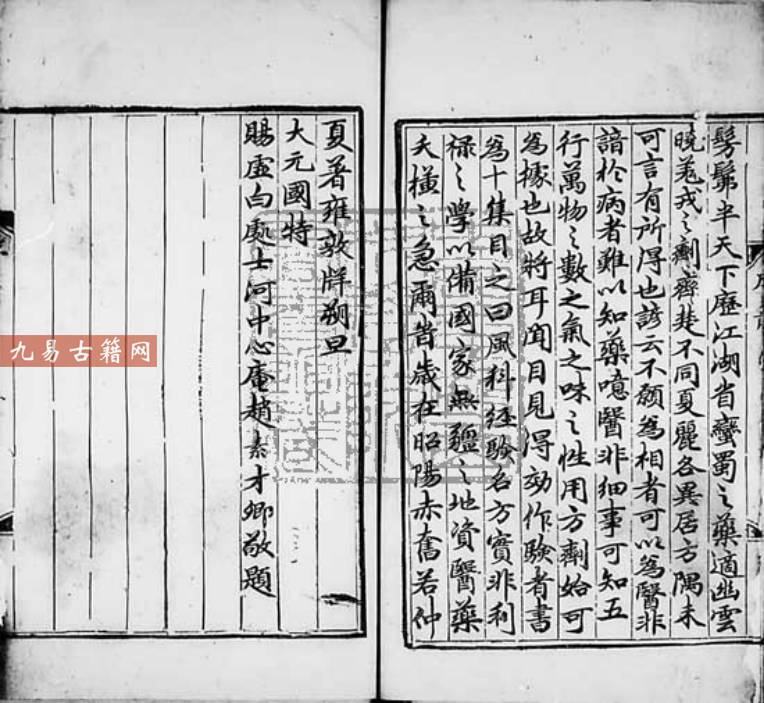 髣髴半天下歷江湖省蠻蜀之藥適幽雲
曉羌戎之劑齊楚不同夏麗各異居方隅未
可言有所得也諺云不願為相者可以為醫非
諳於病者難以知藥噫醫非細事可知五
行萬物之數之氣之味之性用方劑始可
為據也故將耳聞目見得効作驗者書
為十集目之曰風科經驗名方實非利
禄之學以備國家無疆之地資醫藥
夭橫之急爾旹歲在昭陽赤奮若仲
夏著雍敦牂朔旦
大元國特
賜虛白處士河中心庵趙素才卿敬題
九易古籍网